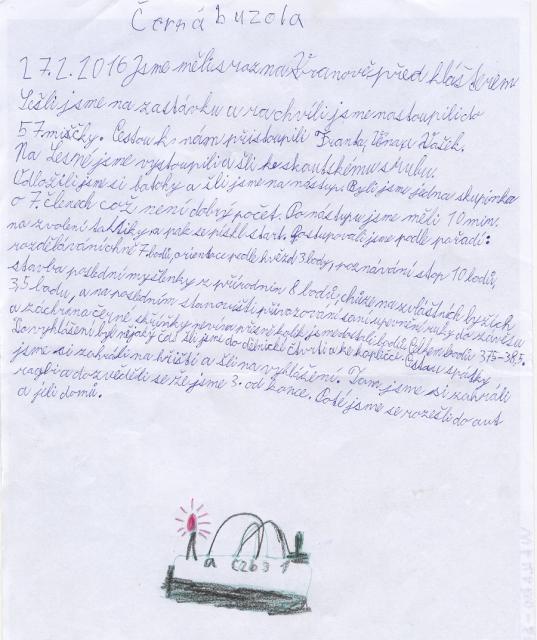 Černá buzola
27.2.2016 Jsme měli sraz na Křanově před klášterem
Lešli jsme na zastávku a za chvíli jsme nastoupili do
57 mičky. Cestou k nám přistoupili Franta, Vašek.
Na Lesné jsme vystoupili a šli ke skautskému srubu.
Odložili jsme si batohy a šli jsme na nástup. Byli jsme jedna skupinka
o 7. členech což není dobrý počet. Po nástupu jsme měli 10 min.
na zvolení taktiky a pak se pískl start. Postupovali jsme podle pořadí:
rozdělávání ohně 7 bodů, orientace podle hvězd 3 body, poznávání stop 10 bodů,
stavba poslední myšlenky z přírodnin 8 bodů, chůze na zvláštních lyžích
3,5 bodu, a na posledním stanovišti přivazování saní upevnění ruky do závěsu
a záchrana černé skříňky nevím přesně kolik jsme dostali bodů. Celkem bodů 37,5-38,5.
Do vyhlášení byl nějaký čas šli jsme do dělnické čtvrti a ke kapličce. Cestou zpátky
jsme si zahráli na hřišti a šli na vyhlášení. Tam jsme si zahráli
ragbi a dozvěděli se že jsme 3. od konce. Poté jsme se rozešli do aut
a jeli domů.
a c2b3 1